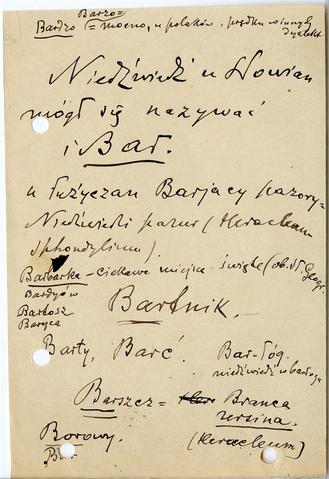 Barzo =
Bardzo (= mocno, u polaków, prędko w innych
dyalekt
Niedźwiedź u Słowian
mógł się nazywać
i Bar.
u Łużyczan Barjacy pazory –
Niedźwiedzi pazur (Heracleum
sphondylium).
Barbarka – Ciekawe miejsca święte (ob. Sł. Geogr.
Bardyów
Bartosz
Baryca
Bartnik.
Barty, Barć.
Bar-łóg.
niedźwiedź w barłogu
Barszcz = Branca
ursina.
(Heracleum)
Borowy.